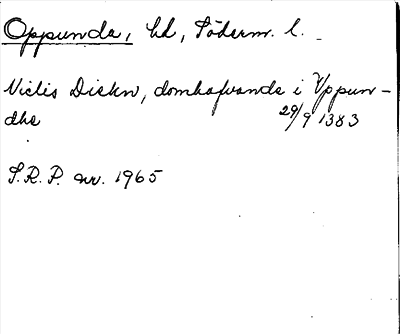 Oppunda, hd, Söderm. l.
Niclis Diekn, domhafvande i Vppun-
dhe 29/9 1383
S.R.P. nr. 1965